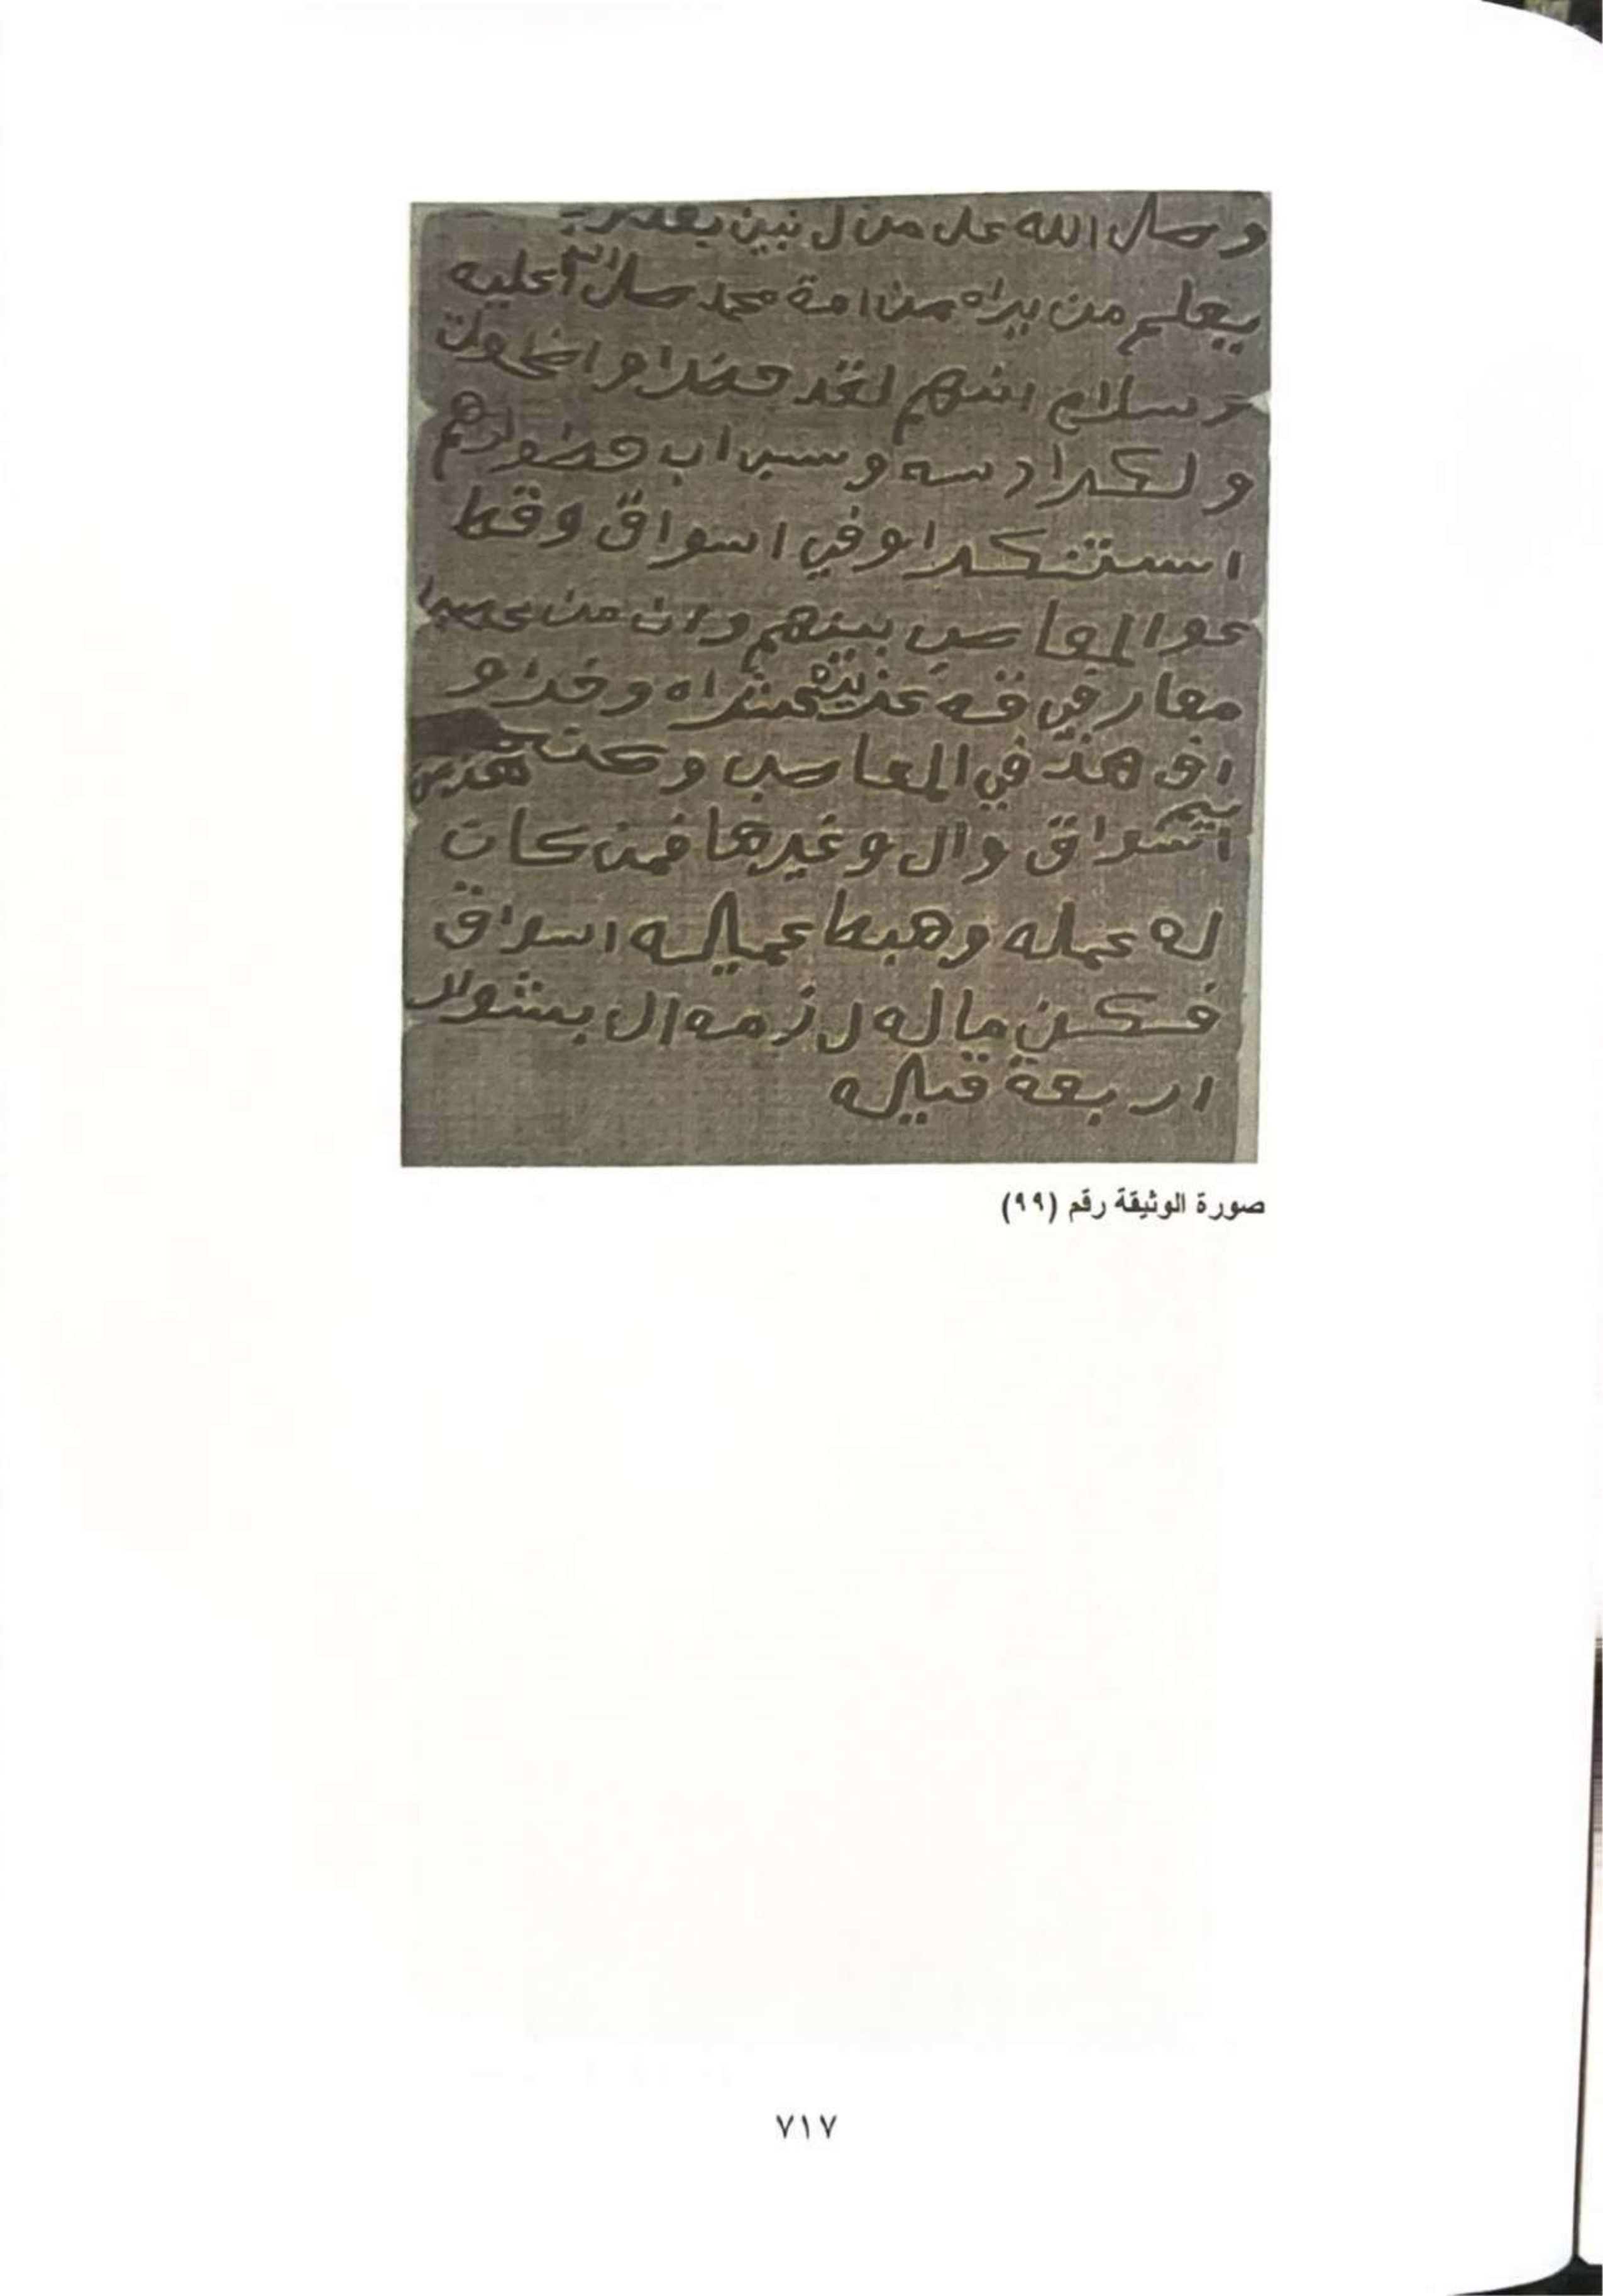 وصال الله عل من ل نبين بعد
يعلم من يراه من امة محمد صال الله عليه
وسلام انهم لقد حضرا و اخلوان
ولكدادسه وسبراب حضورهم
استنكرا وفي اسواق وقط
عوا المعاصب بينهم وان من
معارفي قه عذ يته عنداه وخداو
اف هذ في المعاصب وكنه هذي
اسواق وال وغيرها فمن كان
له عمله وهبط عميله اسواق
فكن ماله لزمه ال بشوال
اربعة قياله
صورة الوثيقة رقم (٩٩)
٧١٧